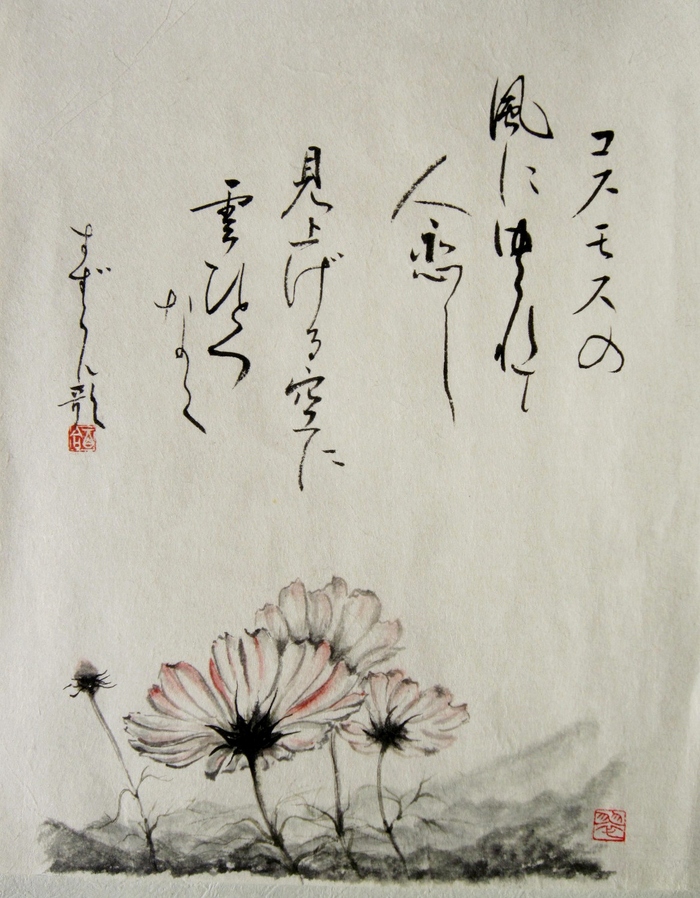 コスモスの
風にゆられて
人恋し
見上げる空に
雲ひとつ
なく
すずらん歌